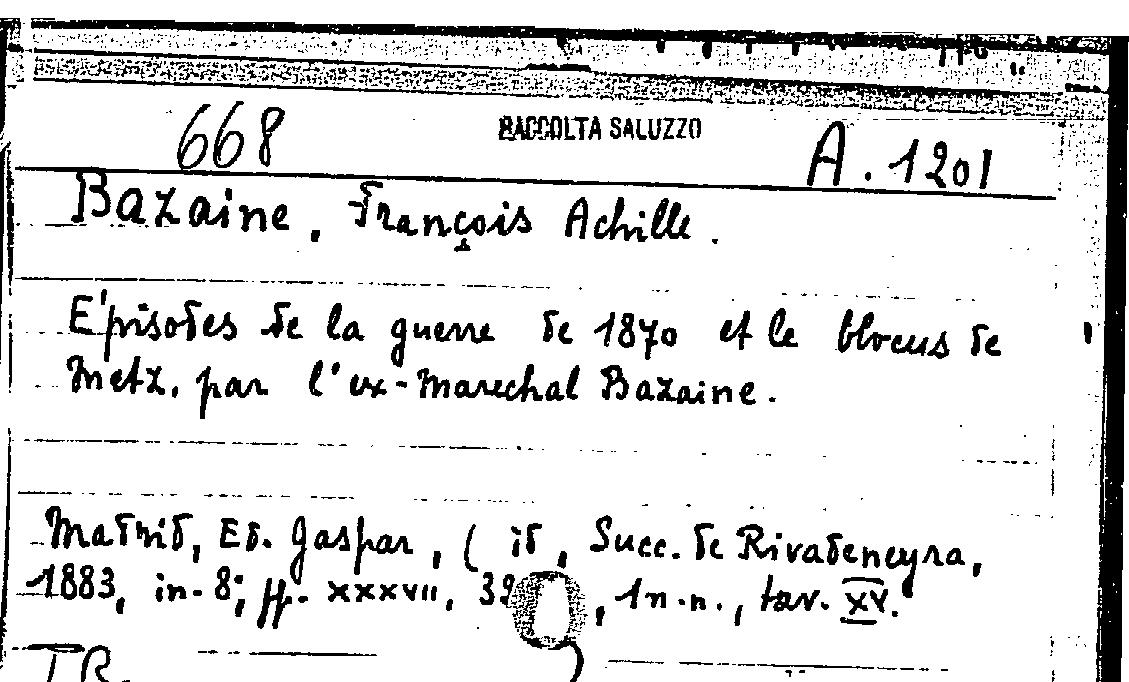 668 RACCOLTA SALUZZO A. 1201
Bazaine, François Achille.
Épisodes de la guerre de 1870 et le blocus de
Metz. par l'ex-Marechal Bazaine.
Madrid, Ed. Gaspar, ( id, Succ. de Rivadeneyra,
1883, in-8°; pp. XXXVII, , 1 n.n., tav. XV.